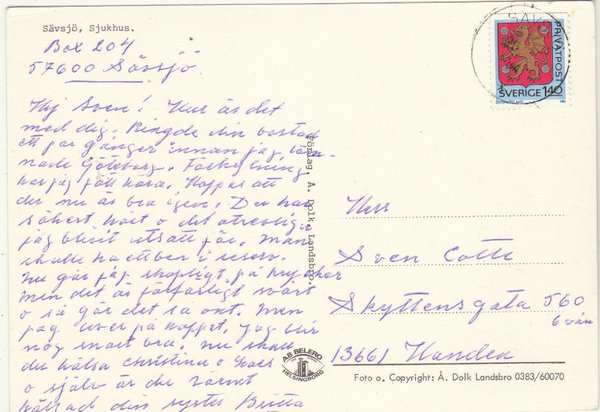 Sävsjö, Sjukhus.
Box 204
57600 Sävsjö
Hej Sven! Hur är det
med dig. Ringde din bostad
ett par gånger innan jag läm-
nade Göteborg. Förkylning
har jag fått höra. Hoppas att
du nu är bra igen. Du har
säkert hört o det otrevliga
jag blivit utsatt för. Man
skulle ha ett ben i reserv.
Nu går jag skapligt på kryckor
men det är förfärligt svårt
o så gör det så ont. Men
jag lever på hoppet, jag blir
nog snart bra. Nu skall
du hälsa Christina o
o själv är du varmt
hälsad din syster Britta
Förlag, Å. Dolk Landsbro.
SÄVSJÖ
PRIVATPOST
SVERIGE 140
Herr
Sven Cotte
Skyttensgata 560
6 vån
13661 Handen
AB BELERO
HELSINGBORG
Foto o. Copyright: Å. Dolk Landsbro 0383/60070